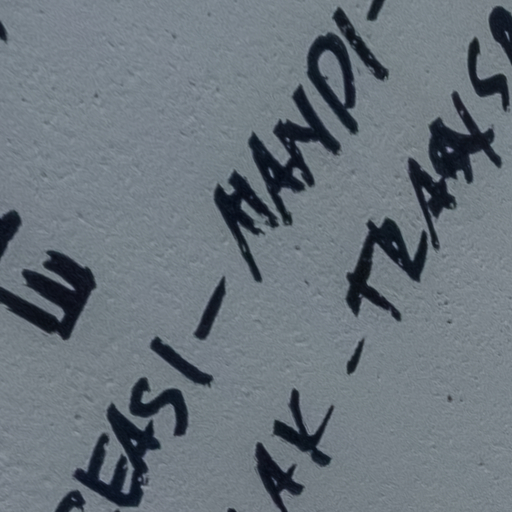 E
REASI - MANDI -
AK - TRANS